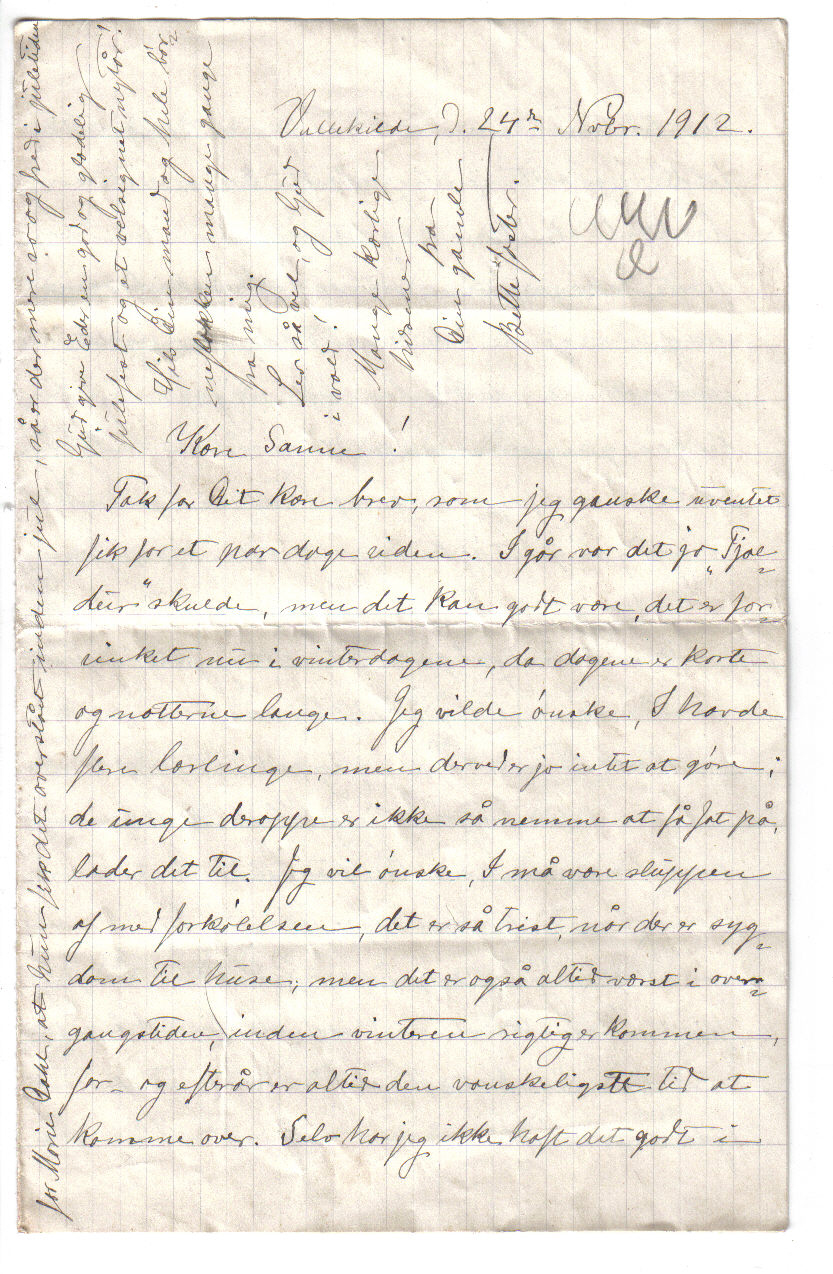 Vallekilde, d. 24de Novbr. 1912.
Kære Sanne!
Tak for Dit kære brev, som jeg ganske uventet
fik for et par dage siden. I går var det jo "Tjæ-
dúr" skulde, men det kan godt være, det er for-
sinket nu i vinterdagene, da dagene er korte
og nætterne lange. Jeg vilde ønske, I havde
flere lærlinge, men derved er jo intet at gøre;
de unge deroppe er ikke så nemme at få fat på,
lader det til. Jeg vil ønske, I må være sluppen
af med forkølelsen, det er så trist, når der er syg-
dom til huse; men det er også altid værst i over-
gangstiden, inden vinteren rigtig er kommen,
for- og efterår er altid den vanskeligste tid at
komme over. Selv har jeg ikke haft det godt i
for Marie Dahl, at hun fik det overstået inden jul, så er der mere ro og fred i juletiden
Gud give Eder en god og glædelig
julefest og et velsignet nytår!
Hils Din mand og hele bør-
neflokken mange gange
fra mig.
Lev så vel, og Gud
i vold!
Mange kærlige
hilsener
fra
Din gamle
"Bette faster.